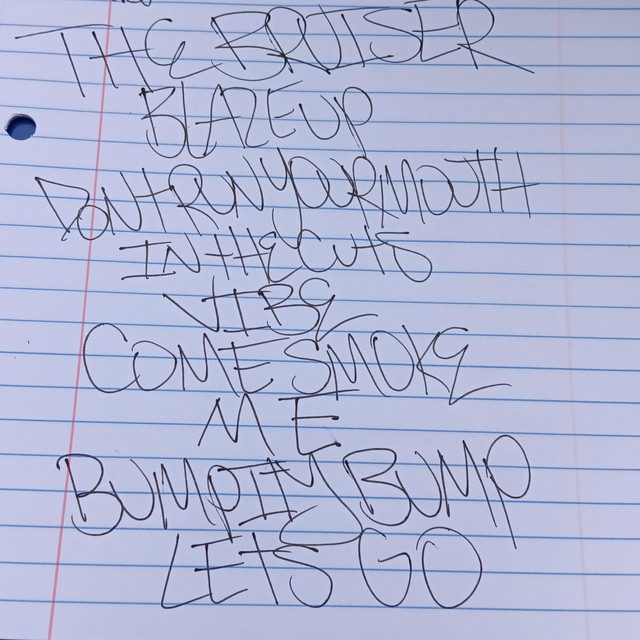 THE BRUISER
BLAZE UP
DONT RUN YOUR MOUTH
IN THE CUTS
VIBE
COME SMOKE
ME
BUMPITY BUMP
LETS GO